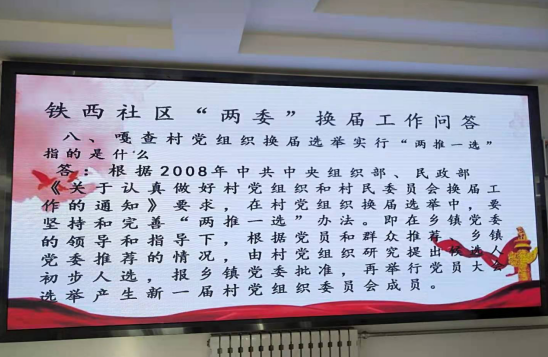 铁西社区“两委”换届工作问答
八、嘎查村党组织换届选举实行“两推一选”
指的是什么
答：根据2008年中共中央组织部、民政部
《关于认真做好村党组织和村民委员会换届工
作的通知》要求，在村党组织换届选举中，要
坚持和完善“两推一选”办法。即在乡镇党委
的领导和指导下，根据党员和群众推荐、乡镇
党委推荐的情况，由村党组织研究提出候选人
初步人选，报乡镇党委批准，再举行党员大会
选举产生新一届村党组织委员会成员。